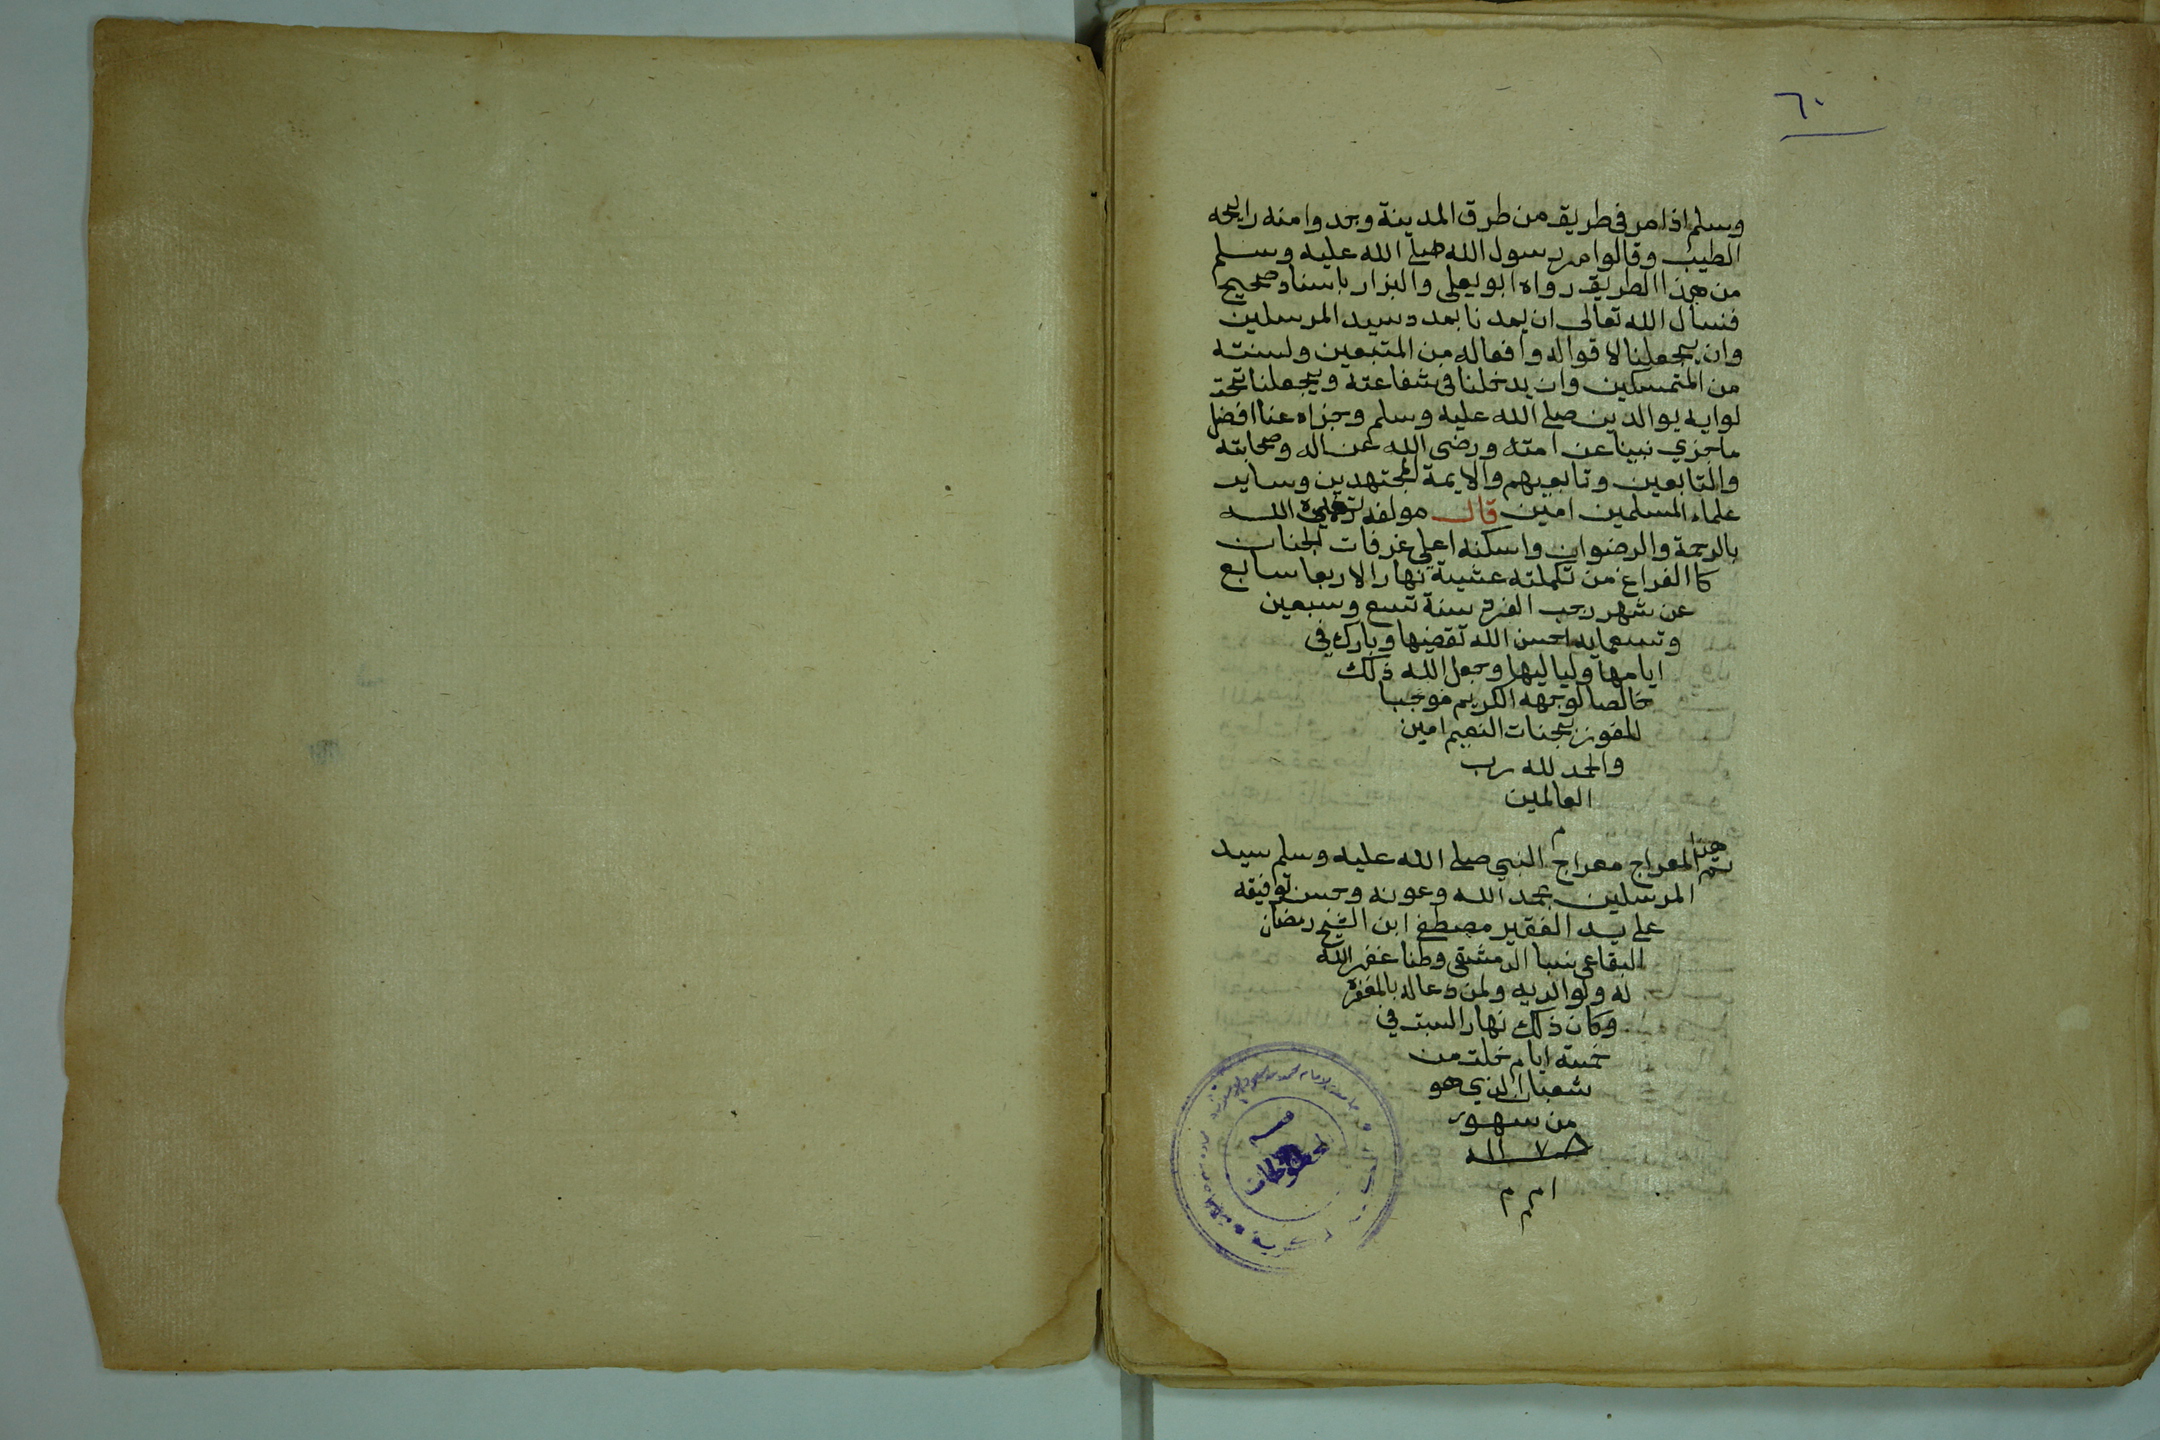 ٦٠
وسلم اذا مر في طريق من طرق المدينة وجدوا منه رايحه
الطيب وقالوا مر رسول الله صلى الله عليه وسلم
من هذا الطريق رواه ابو يعلى والبزار باسناد صحيح
فنسأل الله تعالى ان يمدنا بمدد سيد المرسلين
وان يجعلنا لاقواله وافعاله من المتبعين ولسنته
من المتمسكين وان يدخلنا في شفاعته ويجعلنا تحت
لوايه يوالدين صلى الله عليه وسلم وجزاه عنا افضل
ما جزي نبينا عن امته ورضى الله عن اله وصحابته
والتابعين وتابعيهم والايمة المجتهدين وساير
علماء المسلمين امين قال مولفه تغمده الله
بالرحمة والرضوان واسكنه اعلى غرفات الجنان
كا الفراغ من تكملته عشية نهار الاربعا سابع
عن شهر رجب الفرد سنة تسع وسبعين
وتسعمايه احسن الله تقضيها وبارك في
ايامها ولياليها وجعل الله ذلك
خالصا لوجهه الكريم موجبا
للفوز بجنات النعيم امين
والحمد لله رب
العالمين
م
تم هذا المعراج معراج النبي صلى الله عليه وسلم سيد
المرسلين بحمد الله وعونه وحسن توفيقه
على يد الفقير مصطفى ابن الشيخ رمضان
البقاعى نسبا الدمشقى وطنا غفر الله
له ولوالديه ولمن دعا له بالمغفرة
وكان ذلك نهار السبت في
خمسة ايام خلت من
شعبان الذي هو
من سهور
امم م
قسم
المخطوطات